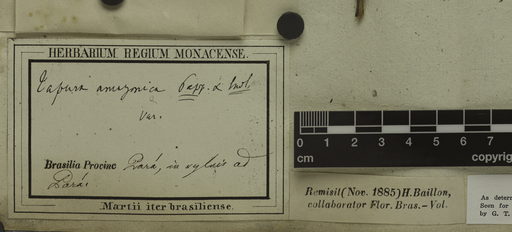 HERBARIUM REGIUM MONACENSE.
Tapura amazonica Popp. & Endl.
Var.
Brasilia Provinc Pará, in sylvis ad
Pará.
Martii iter brasiliense.
0 1 2 3 4 5 6 7
cm copyrig
Remisit (Nov. 1885) H. Baillon,
collaborator Flor. Bras. - Vol.
As determ
Seen for
by G. T.